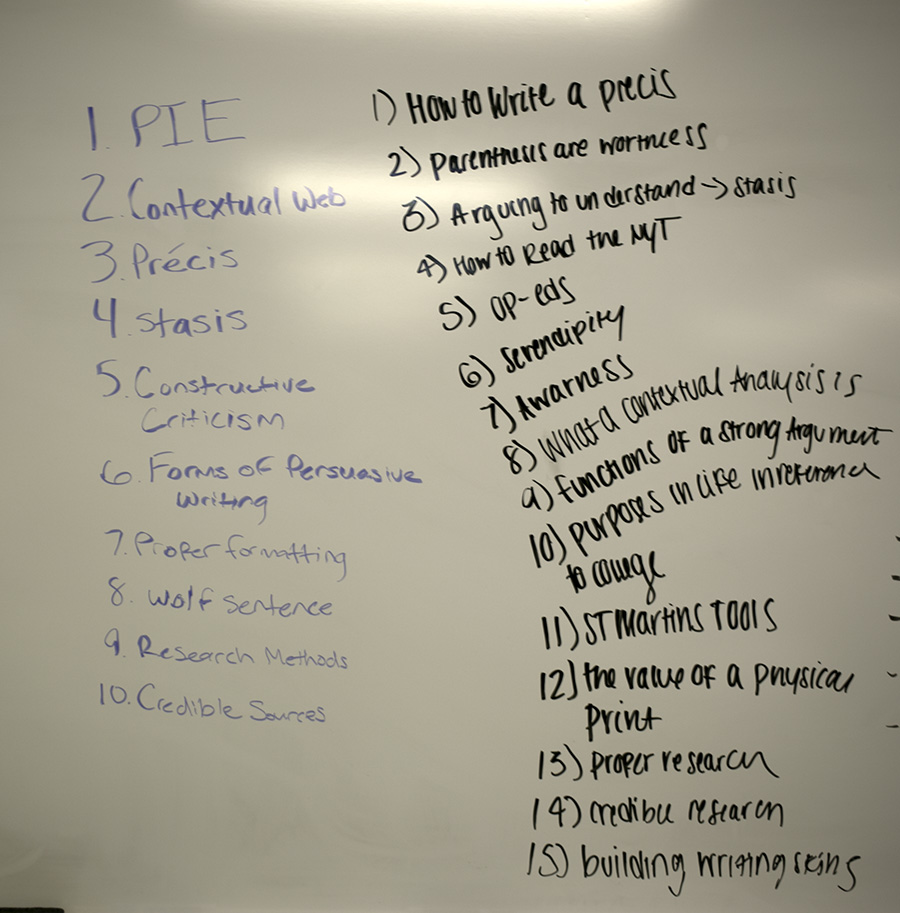 1. PIE
2. Contextual Web
3. Précis
4. Stasis
5. Constructive
Criticism
6. Forms of Persuasive
Writing
7. Proper formatting
8. Wolf Sentence
9. Research Methods
10. Credible Sources
1) How to Write a precis
2) Parenthesis are worthless
3) Arguing to understand -> stasis
4) How to Read the NYT
5) OP-eds
6) Serendipity
7) Awarness
8) What a contextual Analysis is
9) functions of a strong Argument
10) purposes in life in reference
to college
11) ST Martins TOOLS
12) the value of a physical
print
13) Proper research
14) credible research
15) building writing skills